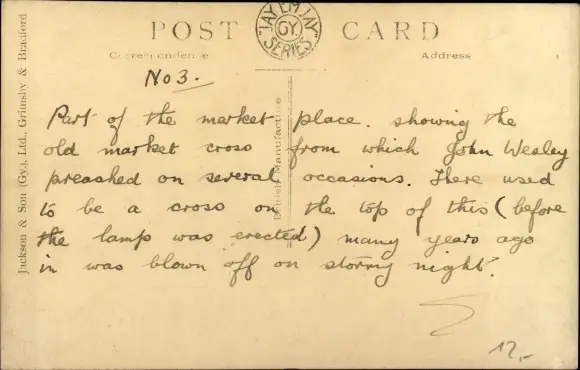 POST CARD
"JAY EM JAY" GY. SERIES
Correspondence
Address
No 3.
Part of the market place. showing the
old market cross from which John Wesley
preached on several occasions. There used
to be a cross on the top of this (before
the lamp was erected) many years ago
in was blown off on stormy night.
17,-
Jackson & Son (Gy.), Ltd., Grimsby & Bradford
British Manufacture